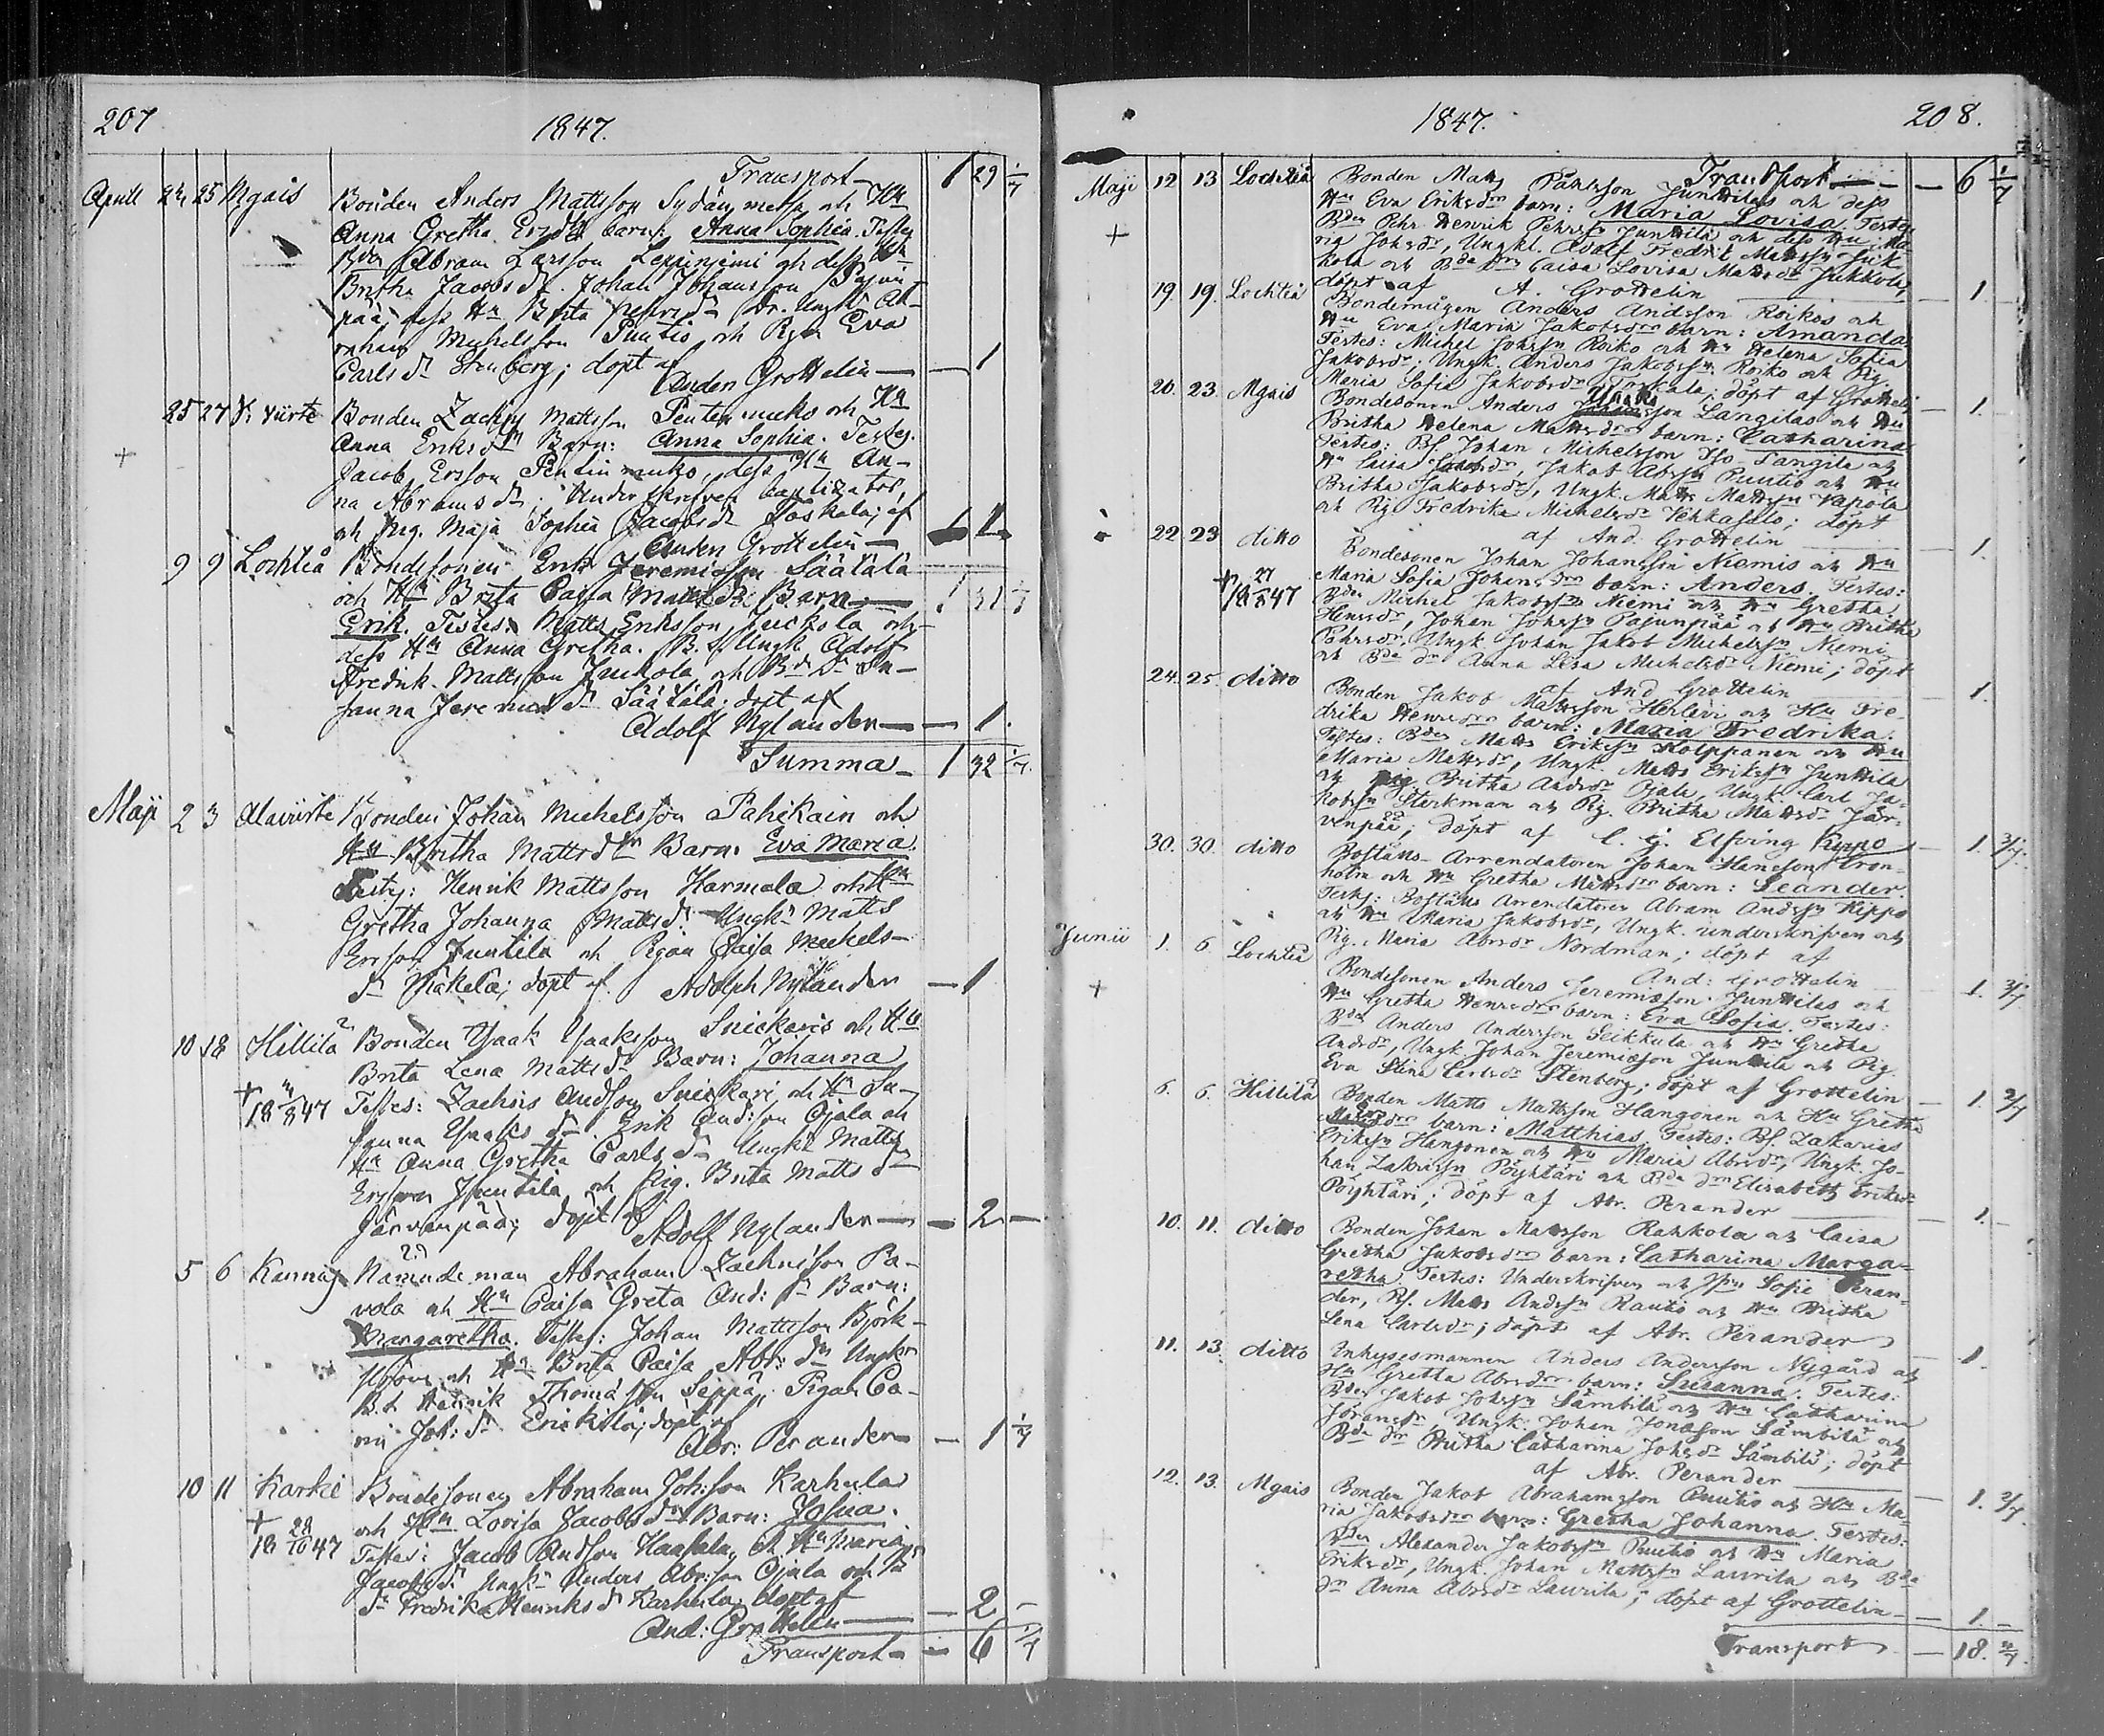 207
1847.
Transport — 1 29 1/7
April 24 25 Mgais Bonden Anders Mattsson och Hu
Anna Gretha Ersdr barn: Anna Sophia. Testes
Bdn Abram Larsson Leppiniemi och dess Hu
Britha Jacobsdr. Johan Johansson Pajun-
pää dess Hu Brita
Michelsson Puutio och Pigan Eva
Carlsdr Stenberg; döpt af
Anders Grottelin — — 1
25 27 Y: viirte Bonden Zachris Mattsson och Hu
Anna Eriksdrs Barn: Anna Sophia. Testes.
Jacob Ersson dess Hu An-
na Abramsdr; Underskrefven baptizator,
och Pig. Maja Sophia Jacobsdr Toskala; af
Anders Grottelin — 1
9 9 Lochteå Bondesonen Erik Jeremiasson Säätälä
och Hu Brita Cajsa Mattsdrs Barn —
Erik. Testes: Matts Eriksson Juckola och
dess Hu Anna Gretha. B. S. Ungk. Adolf
Fredrik Mattsson Juckola och Bde Dr Su-
sanna Jeremiædr Säätälä; döpt af
Adolf Nylander — — 1.
Summa — 1 32 1/7.
Maji 2 3 Alaviirte Bonden Johan Michelsson Pahikain och
Hu Britha Mattsdrs Barn. Eva Maria.
Testes: Henrik Mattsson Karmala och Hu
Gretha Johanna Mattsdr. Ungkn Matts
Ersson Juntila och Pigan Caisa Michels-
dr Mäkelä; döpt af Adolph Nylander — 1
10 18 Hillilä Bonden Isaak Isaaksson Snickaris och Hu
Brita Lena Mattsdrs Barn: Johanna
+ 18 47 Testes: Zachris Andsson Snickari och Hu Su-
sanna Isaksdr. Erik Andsson Ojala och
Hu Anna Gretha Carlsdr Ungkn Matts
Ersson Juntila och Pig. Brita Mattsdr
Järvenpää; döpt af
Adolf Nylander — — 2 —
5 6 Kannus Nämndeman Abraham Zachrisson Pa-
vola och Hu Caisa Greta And: drs Barn:
Margaretha. Testes: Johan Mattsson Björk-
och Hu Brita Caisa Abr: dr Ungkn
B.s. Henrik Thomasson Seppä, Pigan Ca-
rin Joh: dr Erickilä; döpt af
Abr: Perander — — 1 1/7
10 11 Karhi Bondesonen Abraham Joh:son Karhulas
och Hu Lovisa Jacobsdrs Barn: Josua.
+ 18 28/10 47 Testes: Jacob Andsson Haapala, och Hu Maria
Jacobsdr Ungkn Anders Abr:son Ojala och Bd
dr Fredrika Henriksdr Karhula; döpt af
And: Grottelin — — 2 —
Transport — — 6 1/7
1847.
208.
Transport — — 6 1/7
Maji 12 13 Lochteå Bonden Matts Påhlsson Junttilas och dess
+ Hu Eva Eriksdrs barn: Maria Lovisa. Testes
Bden Pehr Henrik Pehrssn Junttila och dess Hu Ma-
ria Johsdr, Ungkl. Adolf Fredrik Mattssn Juk-
kola och Bde drn Caisa Lovisa Mattsdr Jukkola,
döpt af A. Grottelin — 1.
19. 19. Lochteå Bondemågen Anders Andsson Roikos och
Hu Eva Maria Jakobsdrs barn: Amanda.
Testes: Michel Johssn Roiko och Hu Helena Sofia
Jakobsdr, Ungk. Anders Jakobssn Roiko och Pig.
Maria Sofia Jakobsdr Toskala; döpt af Grottelin — 1.
20. 23. Mgais Bondesonen Anders Långilas och Hu
Britha Helena Mattsdrs barn: Catharina
Testes: Bs. Johan Michelsson Iso-Långila och
Hu Caisa Jakobsdr, Jakob Abrssn Puutio och Hu
Britha Jakobsdr, Ungk. Matts Mattssn Vapola
och Pig. Fredrika Michelsdr Vehkasalo; döpt
af And. Grottelin — 1.
22 23 ditto Bondesonen Johan Johansson Niemis och Hu
+ 18 27/8 47 Maria Sofia Johansdrs barn: Anders. Testes:
Bden Michel Jakobssn Niemi och Hu Gretha
Henrsdr, Johan Johssn Pajunpää och Hu Britha
Pährsdr, Ungk. Johan Jakob Michelssn Niemi
och Bde drn Anna Lisa Michelsdr Niemi; döpt
af And Grottelin — 1.
24. 25. ditto Bonden Jakob Mattsson Herlevi och Hu Fre-
drika Henrsdrs barn: Maria Fredrika.
Testes: Bden Matts Erikssn Kolppanen och Hu
Maria Mattsdr, Ungk. Matts Erikssn Junttila
och Pig. Britha Andrsdr Ojala, Ungk. Carl Ja-
kobssn Sterkman och Pig. Britha Mattsdr Jär-
venpää; döpt af C. G. Elfving — 1. 3/7.
30. 30. ditto Boställs-Arrendatoren Johan Hansson Cron-
holm och Hu Gretha Mattsdrs barn: Leander.
Testes: Boställs Arrendatoren Abram Andssn Kippo
och Hu Maria Jakobsdr, Ungk. underskrifven och
Pig. Maria Abrsdr Nordman; döpt af
And: Grottelin — 1. 3/7
Junii 1. 6. Lochteå Bondesonen Anders Jeremiasson Junttilas och
+ Hu Gretha Henrsdrs barn: Eva Sofia. Testes:
Bden Anders Andersson Seikkula och Hu Gretha
Andrsdr, Ungk Johan Jeremiasson Junttila och Pig.
Eva Stina Carlsdr Stenberg; döpt af Grottelin — 1. 2/7
6. 6. Hillilä Bonden Matts Mattsson Hangonen och Hu Gretha
barn: Matthias. Testes: Bs. Zakarias
Erikssn Hangonen och Hu Maria Abrsdr, Ungk. Jo-
han Zakrissn Pöyhtäri och Bde drn Elisabeth Eriksdr
Pöyhtäri; döpt af Abr. Perander — 1. —
10. 11. ditto Bonden Johan Mattsson Rahkola och Caisa
Gretha Jakobsdrs barn: Catharina Marga-
retha. Testes: Underskrifven och Sofie Peran-
der, Bs. Matts Andssn Rautio och Hu Britha
Lena Carlsdr; döpt af Abr. Perander — 1.
11. 13. ditto Inhysesmannen Anders Andersson Nygård och
Hu Gretha Abrsdrs barn: Susanna. Testes:
Bden Jakob Johssn Sämbilä och Hu Catharina
Göransdr, Ungk. Johan Jonasson Sämbilä och
Bde drn Britha Catharina Johsdr Sämbilä; döpt
af Abr. Perander — 1. 2/7
12. 13. Mgais Bonden Jakob Abrahamsson Puutio och Hu Ma-
ria Jakobsdrs barn: Gretha Johanna. Testes:
Bden Alexander Jakobssn Puutio och Hu Maria
Eriksdr, Ungk. Johan Mattssn Laurila och Bde
drn Anna Abrsdr Laurila; döpt af Grottelin — 1. —
Transport — 18. 4/7.